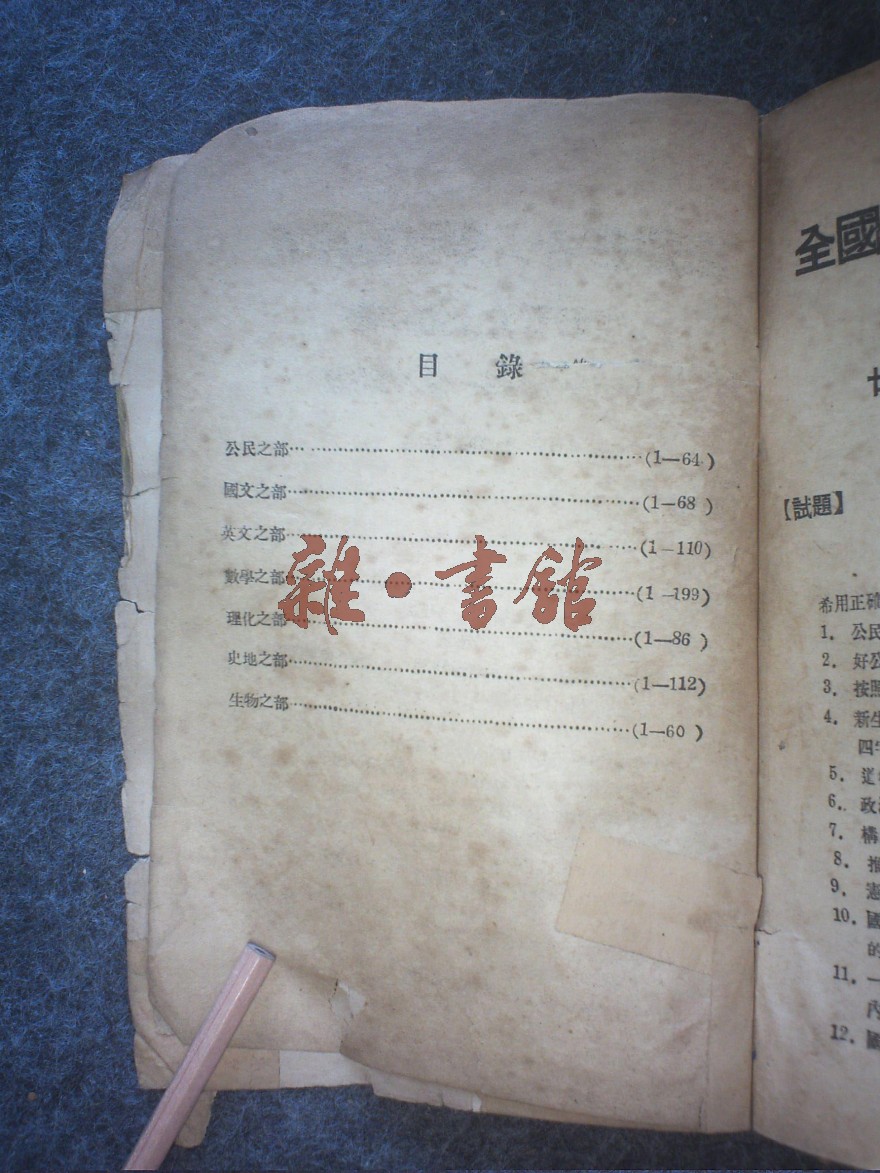 目 錄
公民之部………………(1—64)
國文之部………………(1—68)
英文之部………………(1—110)
數學之部………………(1—199)
理化之部………………(1—86)
史地之部………………(1—112)
生物之部………………(1—60)
雜·書館
全國
【試題】
希用正確
1. 公民
2. 好公
3. 按照
4. 新生
四
5. 這
6. 政
7. 構
8.
9. 憲
10. 國
的
11. 一
內
12. 國